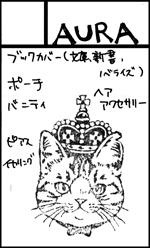 LAURA
ブックカバー(文庫、新書、
ノベライズ)
ポーチ
バニティ
ヘア
アクセサリー
ピアス
イヤリング